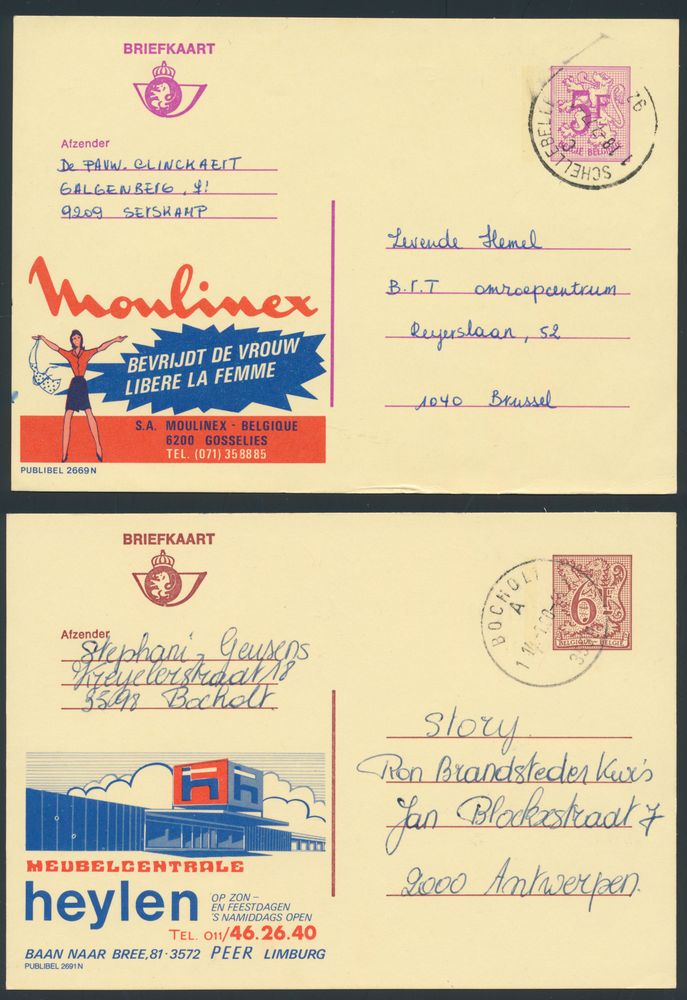 BRIEFKAART
Afzender
De PAUW. CLINCKAERT
GALGENBERG, 41
9209 SERSKAMP
5F
BELGIE BELGIQUE
SCHELLEBELLE
Levende Hemel
B.R.T omroepcentrum
Reyerslaan, 52
1040 Brussel
Moulinex
BEVRIJDT DE VROUW
LIBERE LA FEMME
S.A. MOULINEX - BELGIQUE
6200 GOSSELIES
TEL. (071) 35 88 85
PUBLIBEL 2669 N
BRIEFKAART
Afzender
Stephani Geusens
Kreyelerstraat 18
3598 Bocholt
6F
BELGIQUE BELGIË
BOCHOLT
A
Story
Ron Brandsteder Kwis
Jan Blockxstraat 7
2000 Antwerpen.
MEUBELCENTRALE
heylen
OP ZON –
EN FEESTDAGEN
'S NAMIDDAGS OPEN
TEL. 011/46.26.40
BAAN NAAR BREE, 81 · 3572 PEER LIMBURG
PUBLIBEL 2691 N